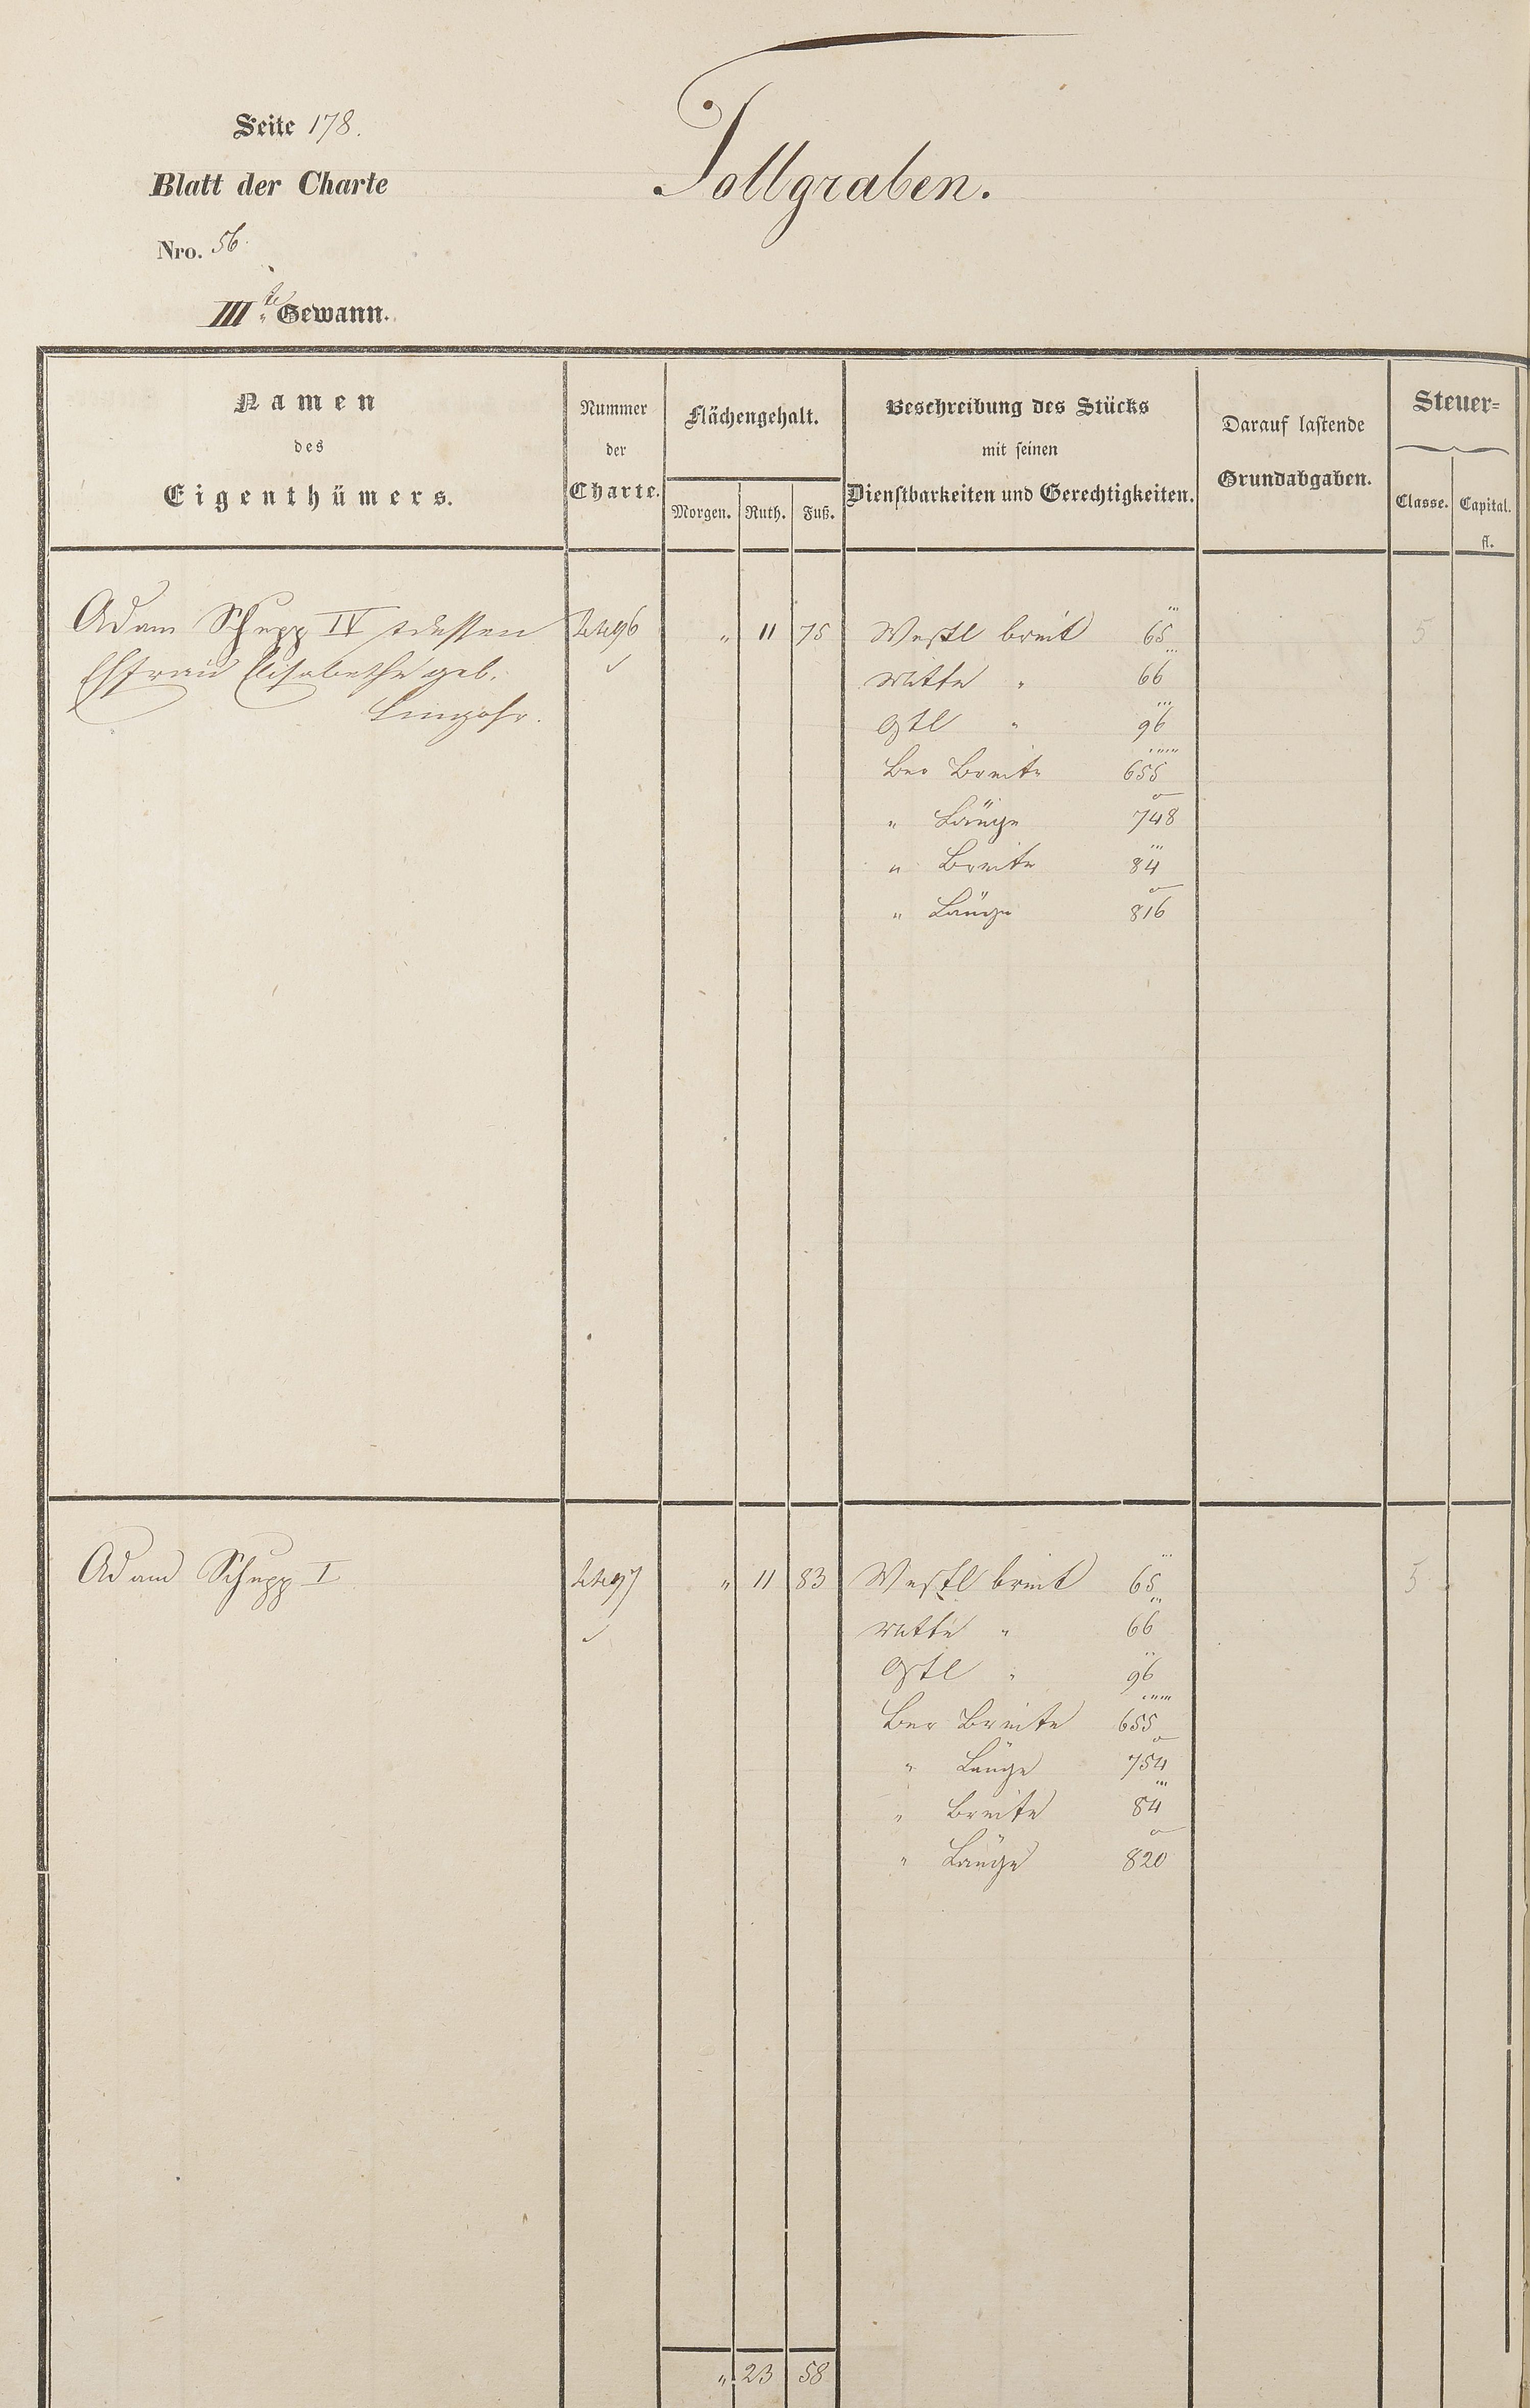 Seite 178.
Blatt der Charte
Nro. 56.
Tollgraben.
IIIte Gewann.
Namen
des
Eigenthümers.
Nummer
der
Charte.
Flächengehalt.
Morgen. Ruth. Fuß.
Beschreibung des Stücks
mit seinen
Dienstbarkeiten und Gerechtigkeiten.
Darauf lastende
Grundabgaben.
Steuer-
Classe. Capital.
fl.
Adam Schupp IV dessen 2496 " 11 75 Westl breit 65 5
Ehfrau Elisabethe geb. Mitte " 66
Lingohr. Ostl " 96
Ber Breite 655
" Länge 748
" Breite 84
" Länge 816
Adam Schupp I 2497 " 11 83 Westl breit 65 5
Mitte " 66
Ostl " 96
Ber Breite 655
" Länge 754
" Breite 84
" Länge 820
" 23 58